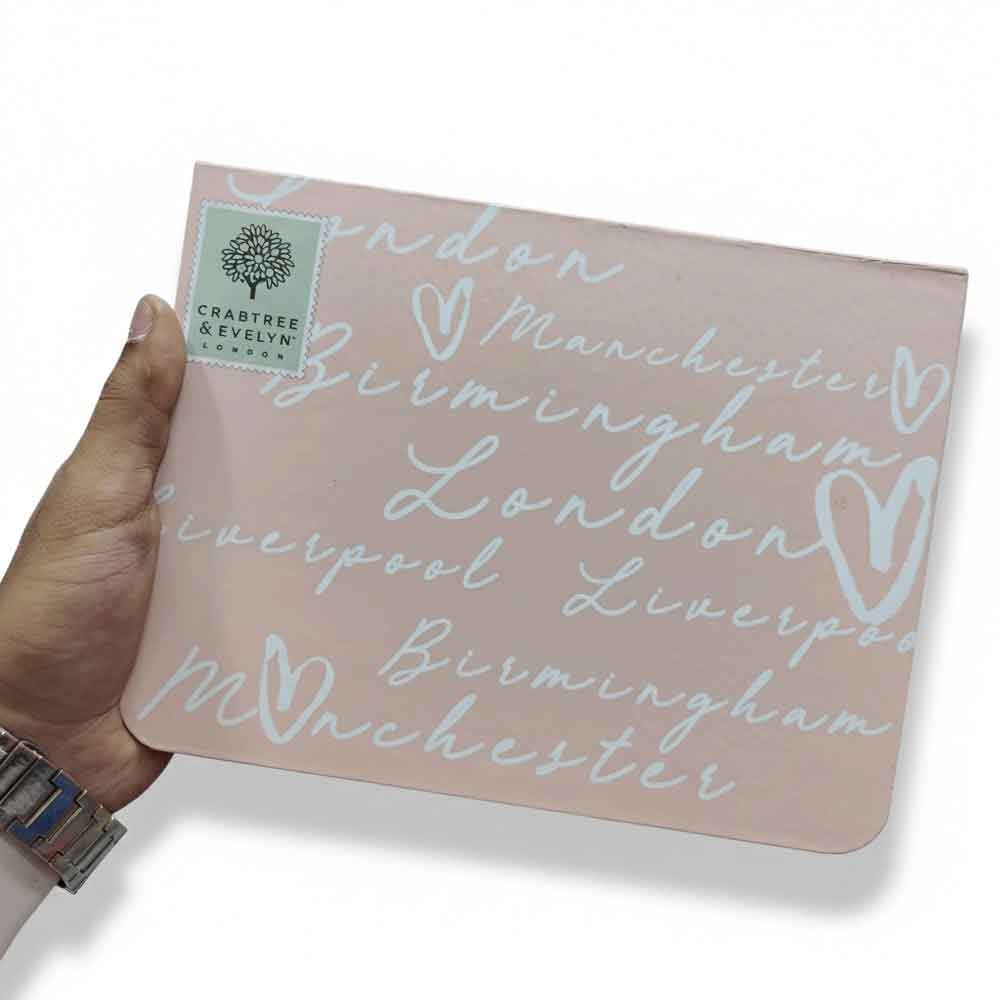 London
CRABTREE
& EVELYN
LONDON
Manchester
Birmingham
London
Liverpool Liverpoo
Birmingham
Manchester